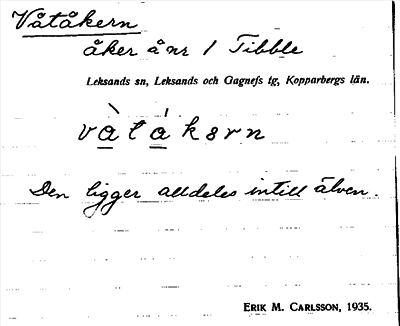 Våtåkern
åker å nr 1 Tibble
Leksands sn, Leksands och Gagnefs tg, Kopparbergs län.
và̱tá̱kərn
Den ligger alldeles intill älven.
ERIK M. CARLSSON, 1935.